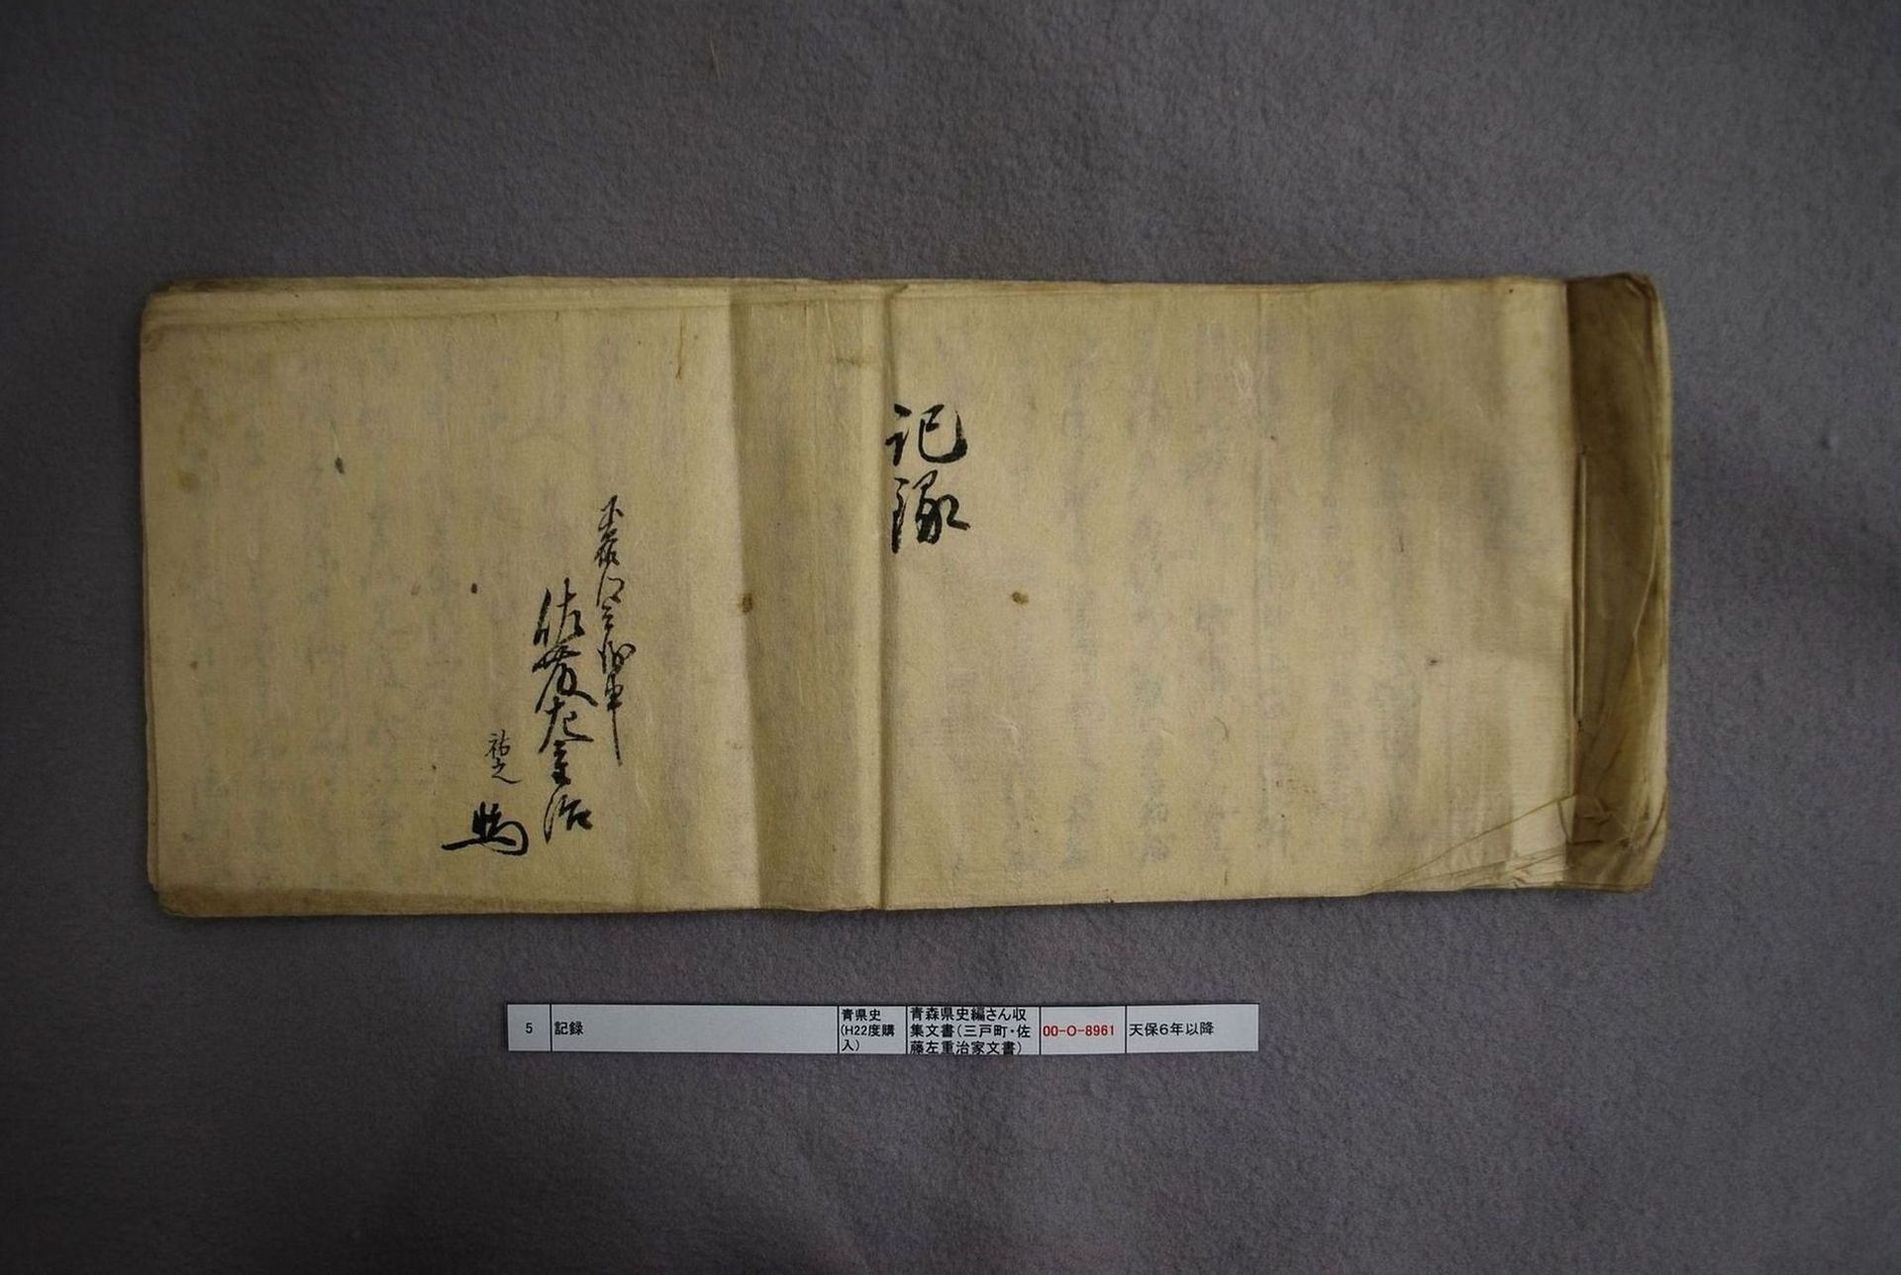 記録
佐藤左重治
祐之
5 記録 青県史(H22度購入) 青森県史編さん収集文書(三戸町・佐藤左重治家文書) 00-O-8961 天保6年以降